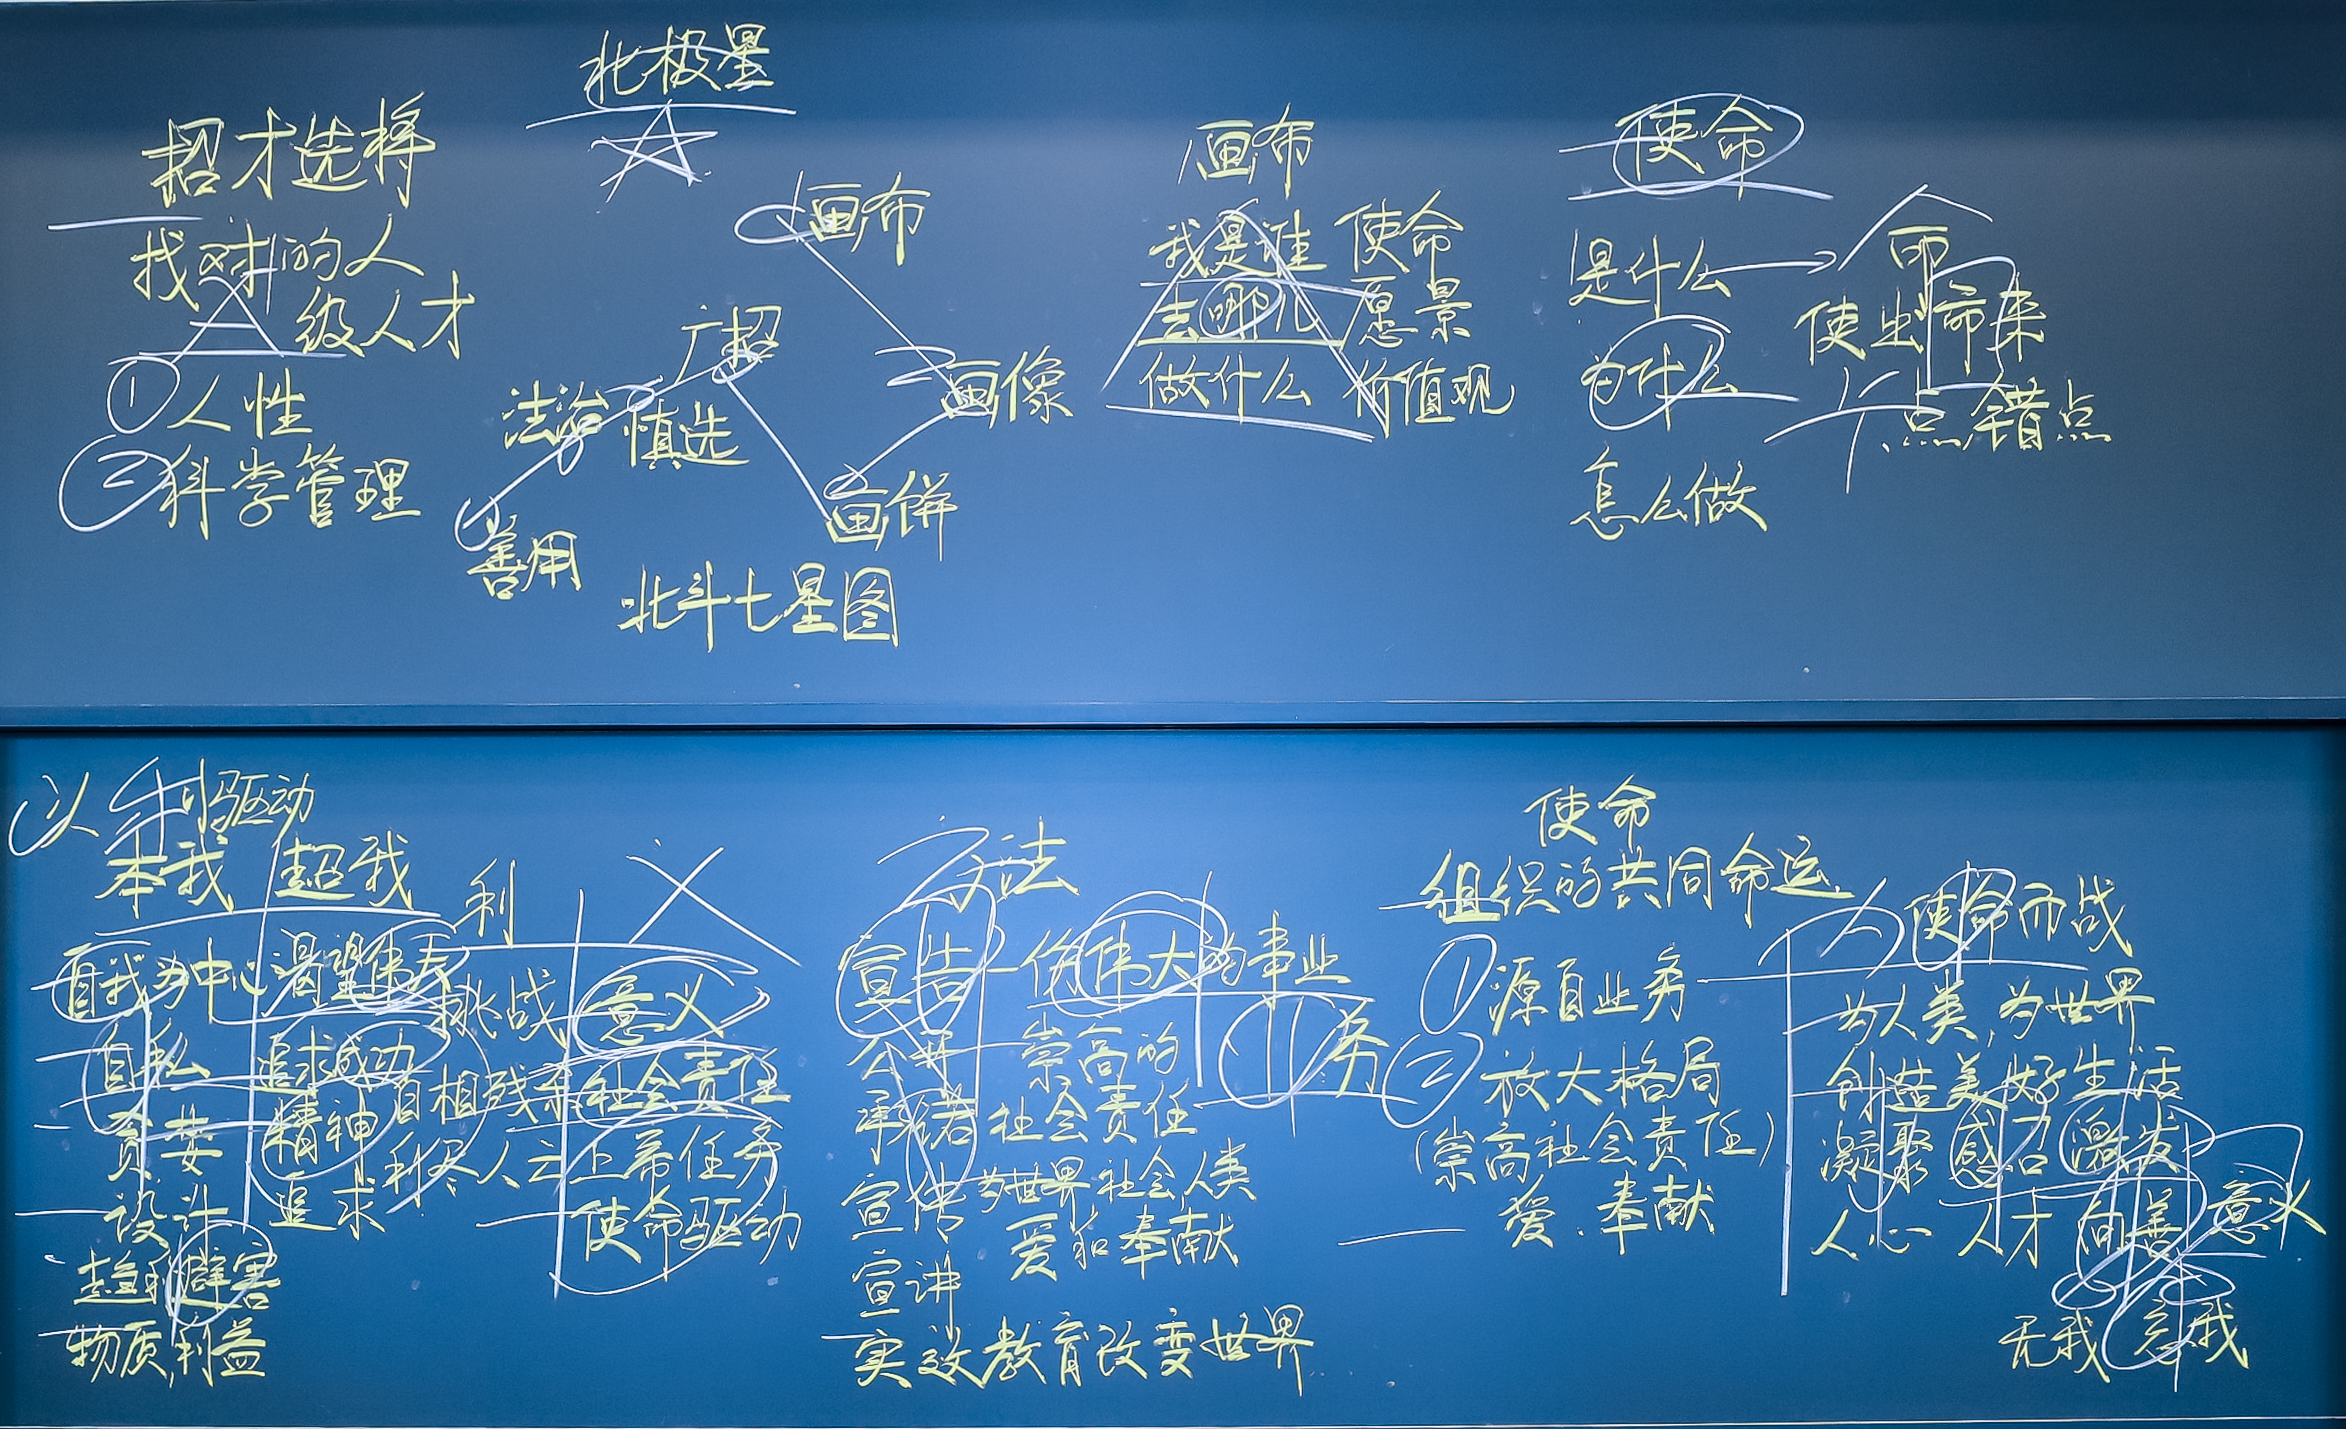 北极星
招才选将
找对的人
三级人才
①人性
②科学管理
画布
画像
画饼
广招
慎选
法治
善用
北斗七星图
画布
我是谁 使命
去哪儿 愿景
做什么 价值观
使命
是什么
为什么
怎么做
使出命来
点错点
以利驱动
本我 超我
自我为中心 渴望伟大
自私 追求成功
贪婪 精神
设计 追求
趋利避害
物质利益
利
挑战 意义
自相残杀 社会责任
利尽人去 上帝任务
使命驱动
方法
宣告一份伟大的事业
公开 崇高的
承诺 社会责任
宣传 为世界社会人类
爱和奉献
宣讲
实效教育改变世界
使命
组织的共同命运
①源自业务
②放大格局
(崇高社会责任)
爱、奉献
为使命而战
为人类,为世界
创造美好生活
凝聚 感召 激发
人心 人才 向善 意义
无我 忘我